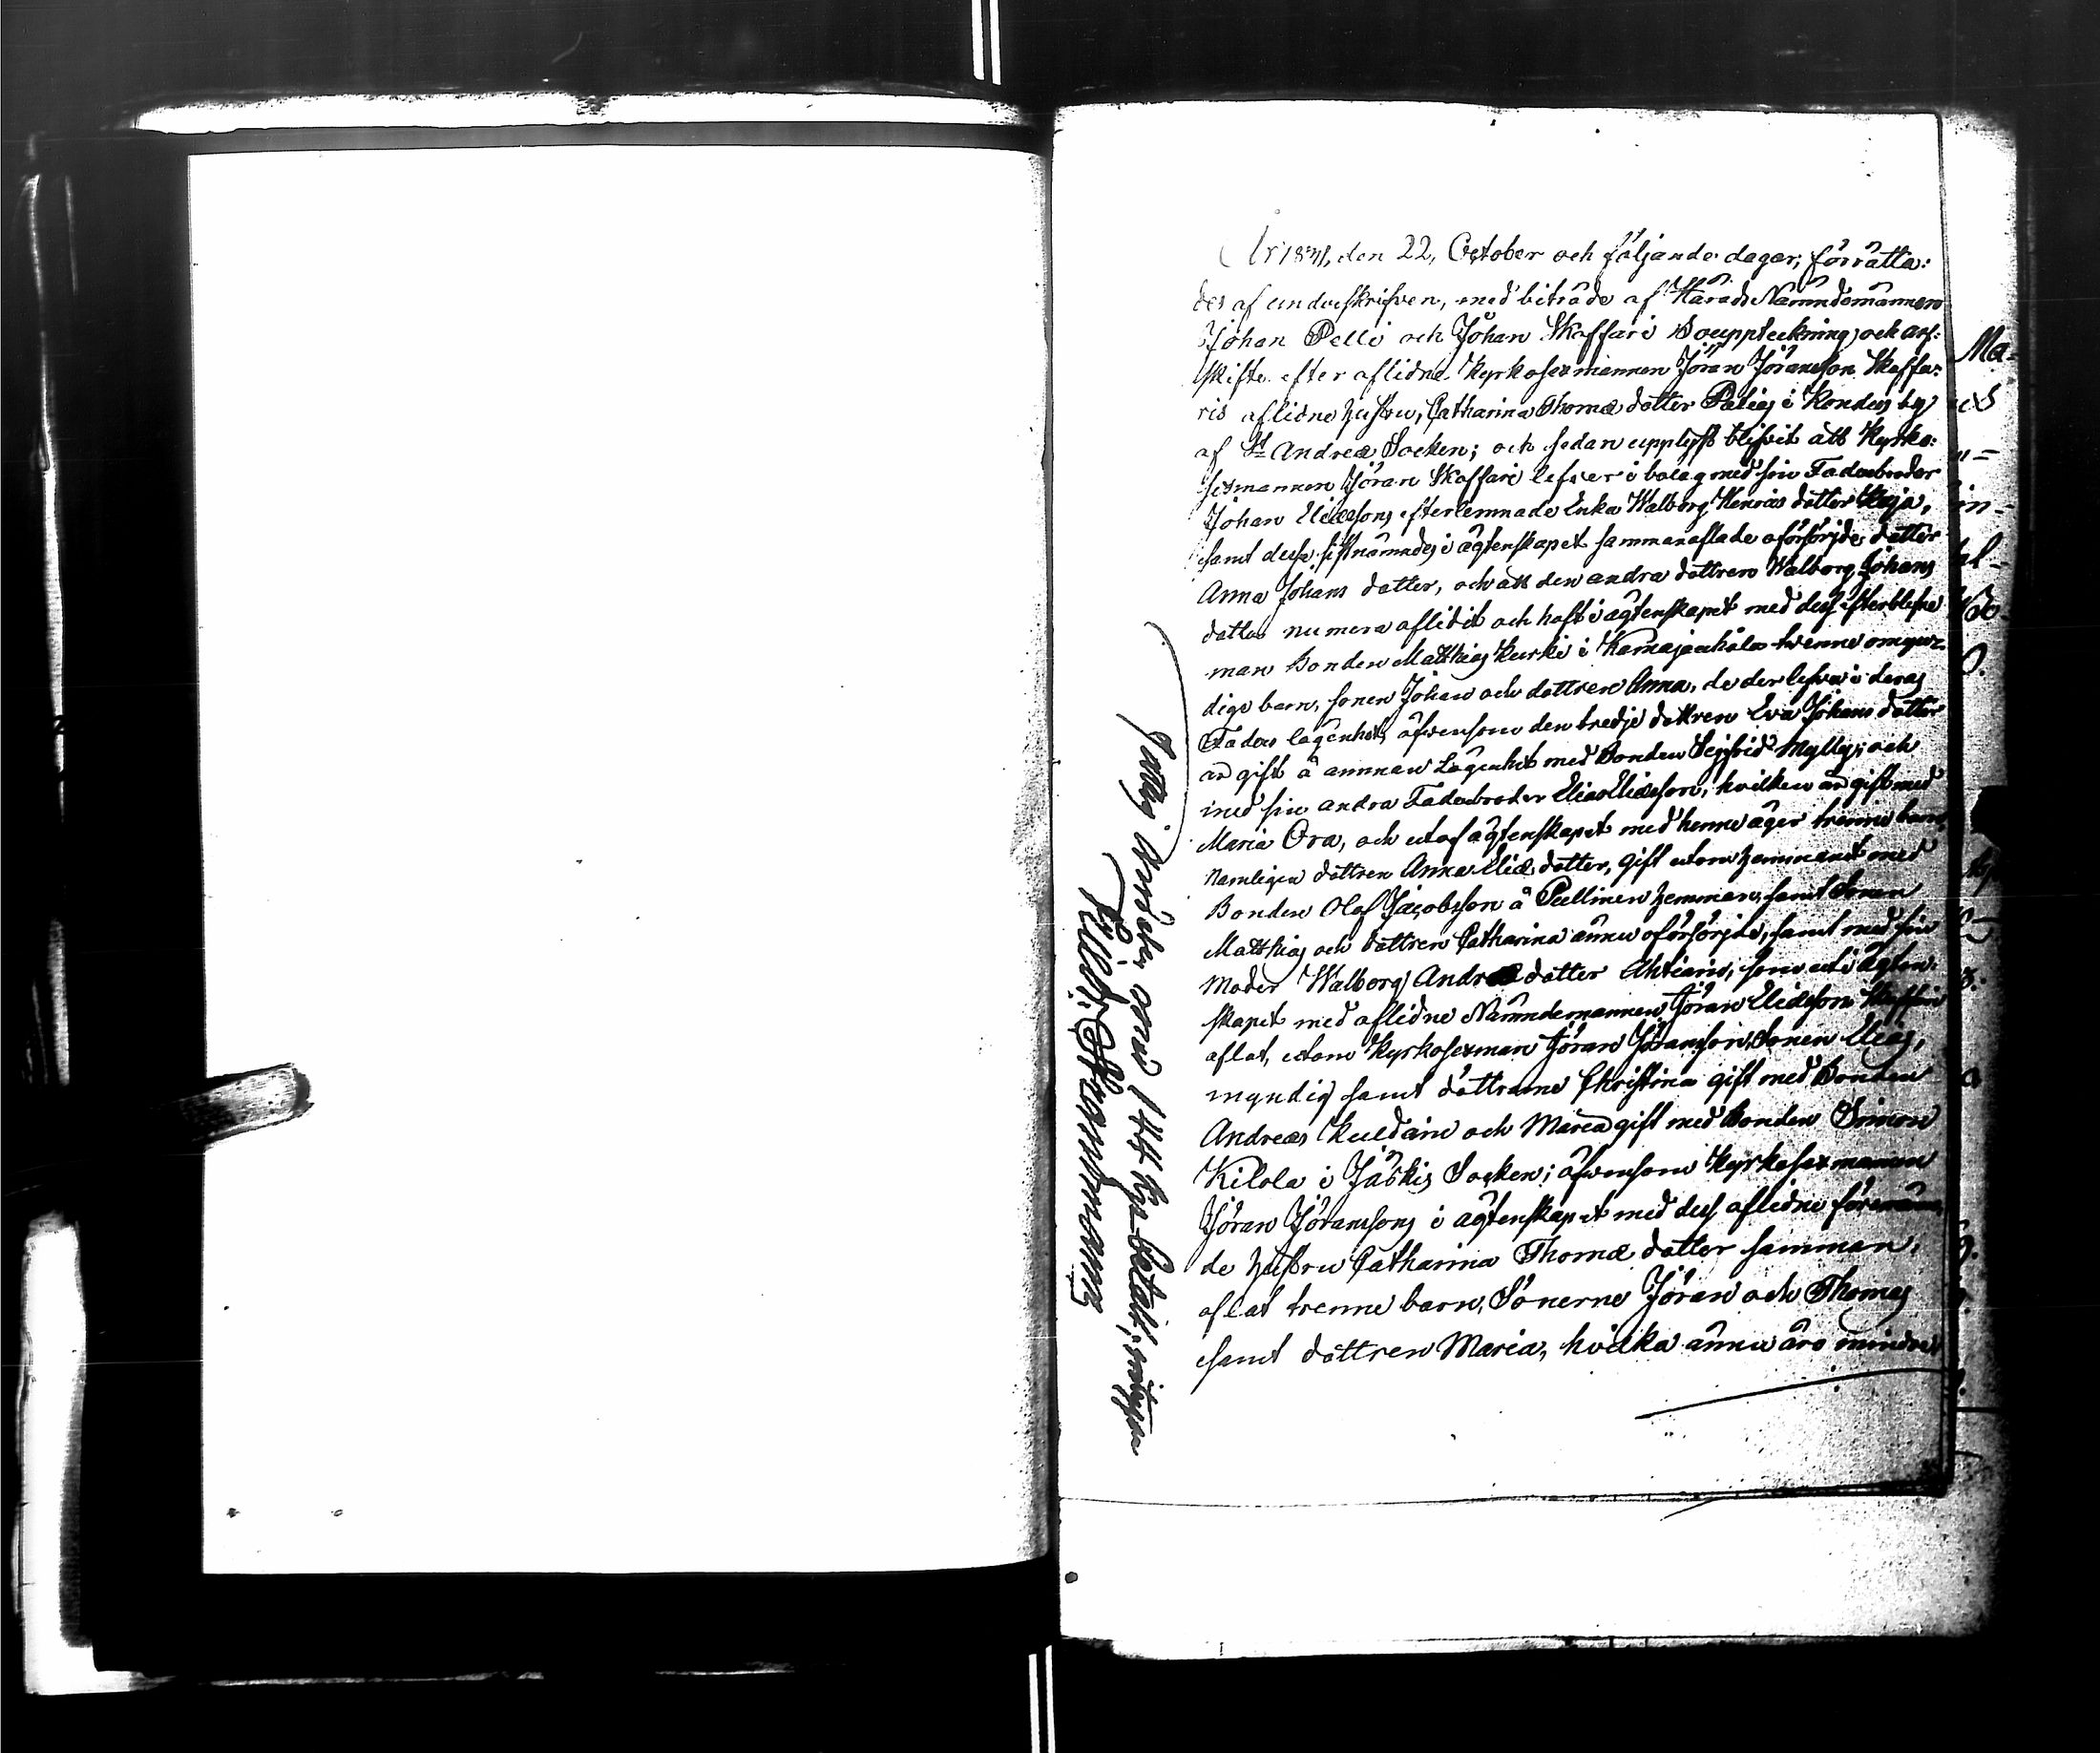 År 1831, den 22, October och följande dagar, förrätta:
des af underskrifven, med biträde af Härads Nämndemännen
Johan Pelli och Johan Skaffari Bouppteckning och arf:
skifte efter aflidne Kyrkosexmannen Jöran Jöransson Skaffa:
ris aflidne hustru, Catharina Thomæ dotter Palis i Kondus by
af St Andreæ Socken; och sedan upplyst blifvit att Kyrko:
sexmannen Jöran Skaffari lefver i bolag med sin Faderbroder
Johan Eliæssons efterlemnade Enka Walborg Henrics dotter
samt dess sistnämndes i ägtenskapet sammanaflade oförsörjde dotter
Anna Johans dotter, och att den andra dottren Walborg Johans
dotter numera aflidit och haft i ägtenskapet med dess efterblefne
man Bonden Matthias Kurki i Kamajankala trenne omyn:
dige barn, sonen Johan och dottren Anna, de der lefva i deras
Faders lägenhet, äfvensom den tredje dottren Eva Johans dotter
är gift å annan Lägenhet med Bonden Sigfrid Mylly; och
med sin andra Faderbroder Elias Eliæsson, hvilken är gift med
Maria Ora, och utaf ägtenskapet med henne äger trenne barn,
nämligen dottren Anna Eliæ dotter, gift utom hemmanet med
Bonden Olof Jacobsson å Pullinen hemman, samt Sonen
Matthias och dottren Catharina ännu oförsörjde, samt med sin
Moder Walborg Andreæ dotter Ahtiain, som uti ägten:
skapet med aflidne Nämndemannen Jöran Eliæsson Skaffari
aflat, utom Kyrkosexman Jöran Jöransson, Sonen Elias,
myndig samt döttrarne Christina gift med Bonden
Andreas Kuldain och Maria gift med Bonden Simon
Kilola i Jäskis Socken; äfvensom Kyrkosexmannen
Jöran Jöranssons i ägtenskapet med dess aflidne förenämn:
de hustru Catharina Thomæ dotter samman:
aflat trenne barn, Sönerne Jöran och Thomas
samt dottren Maria, hvilka ännu äro mindre